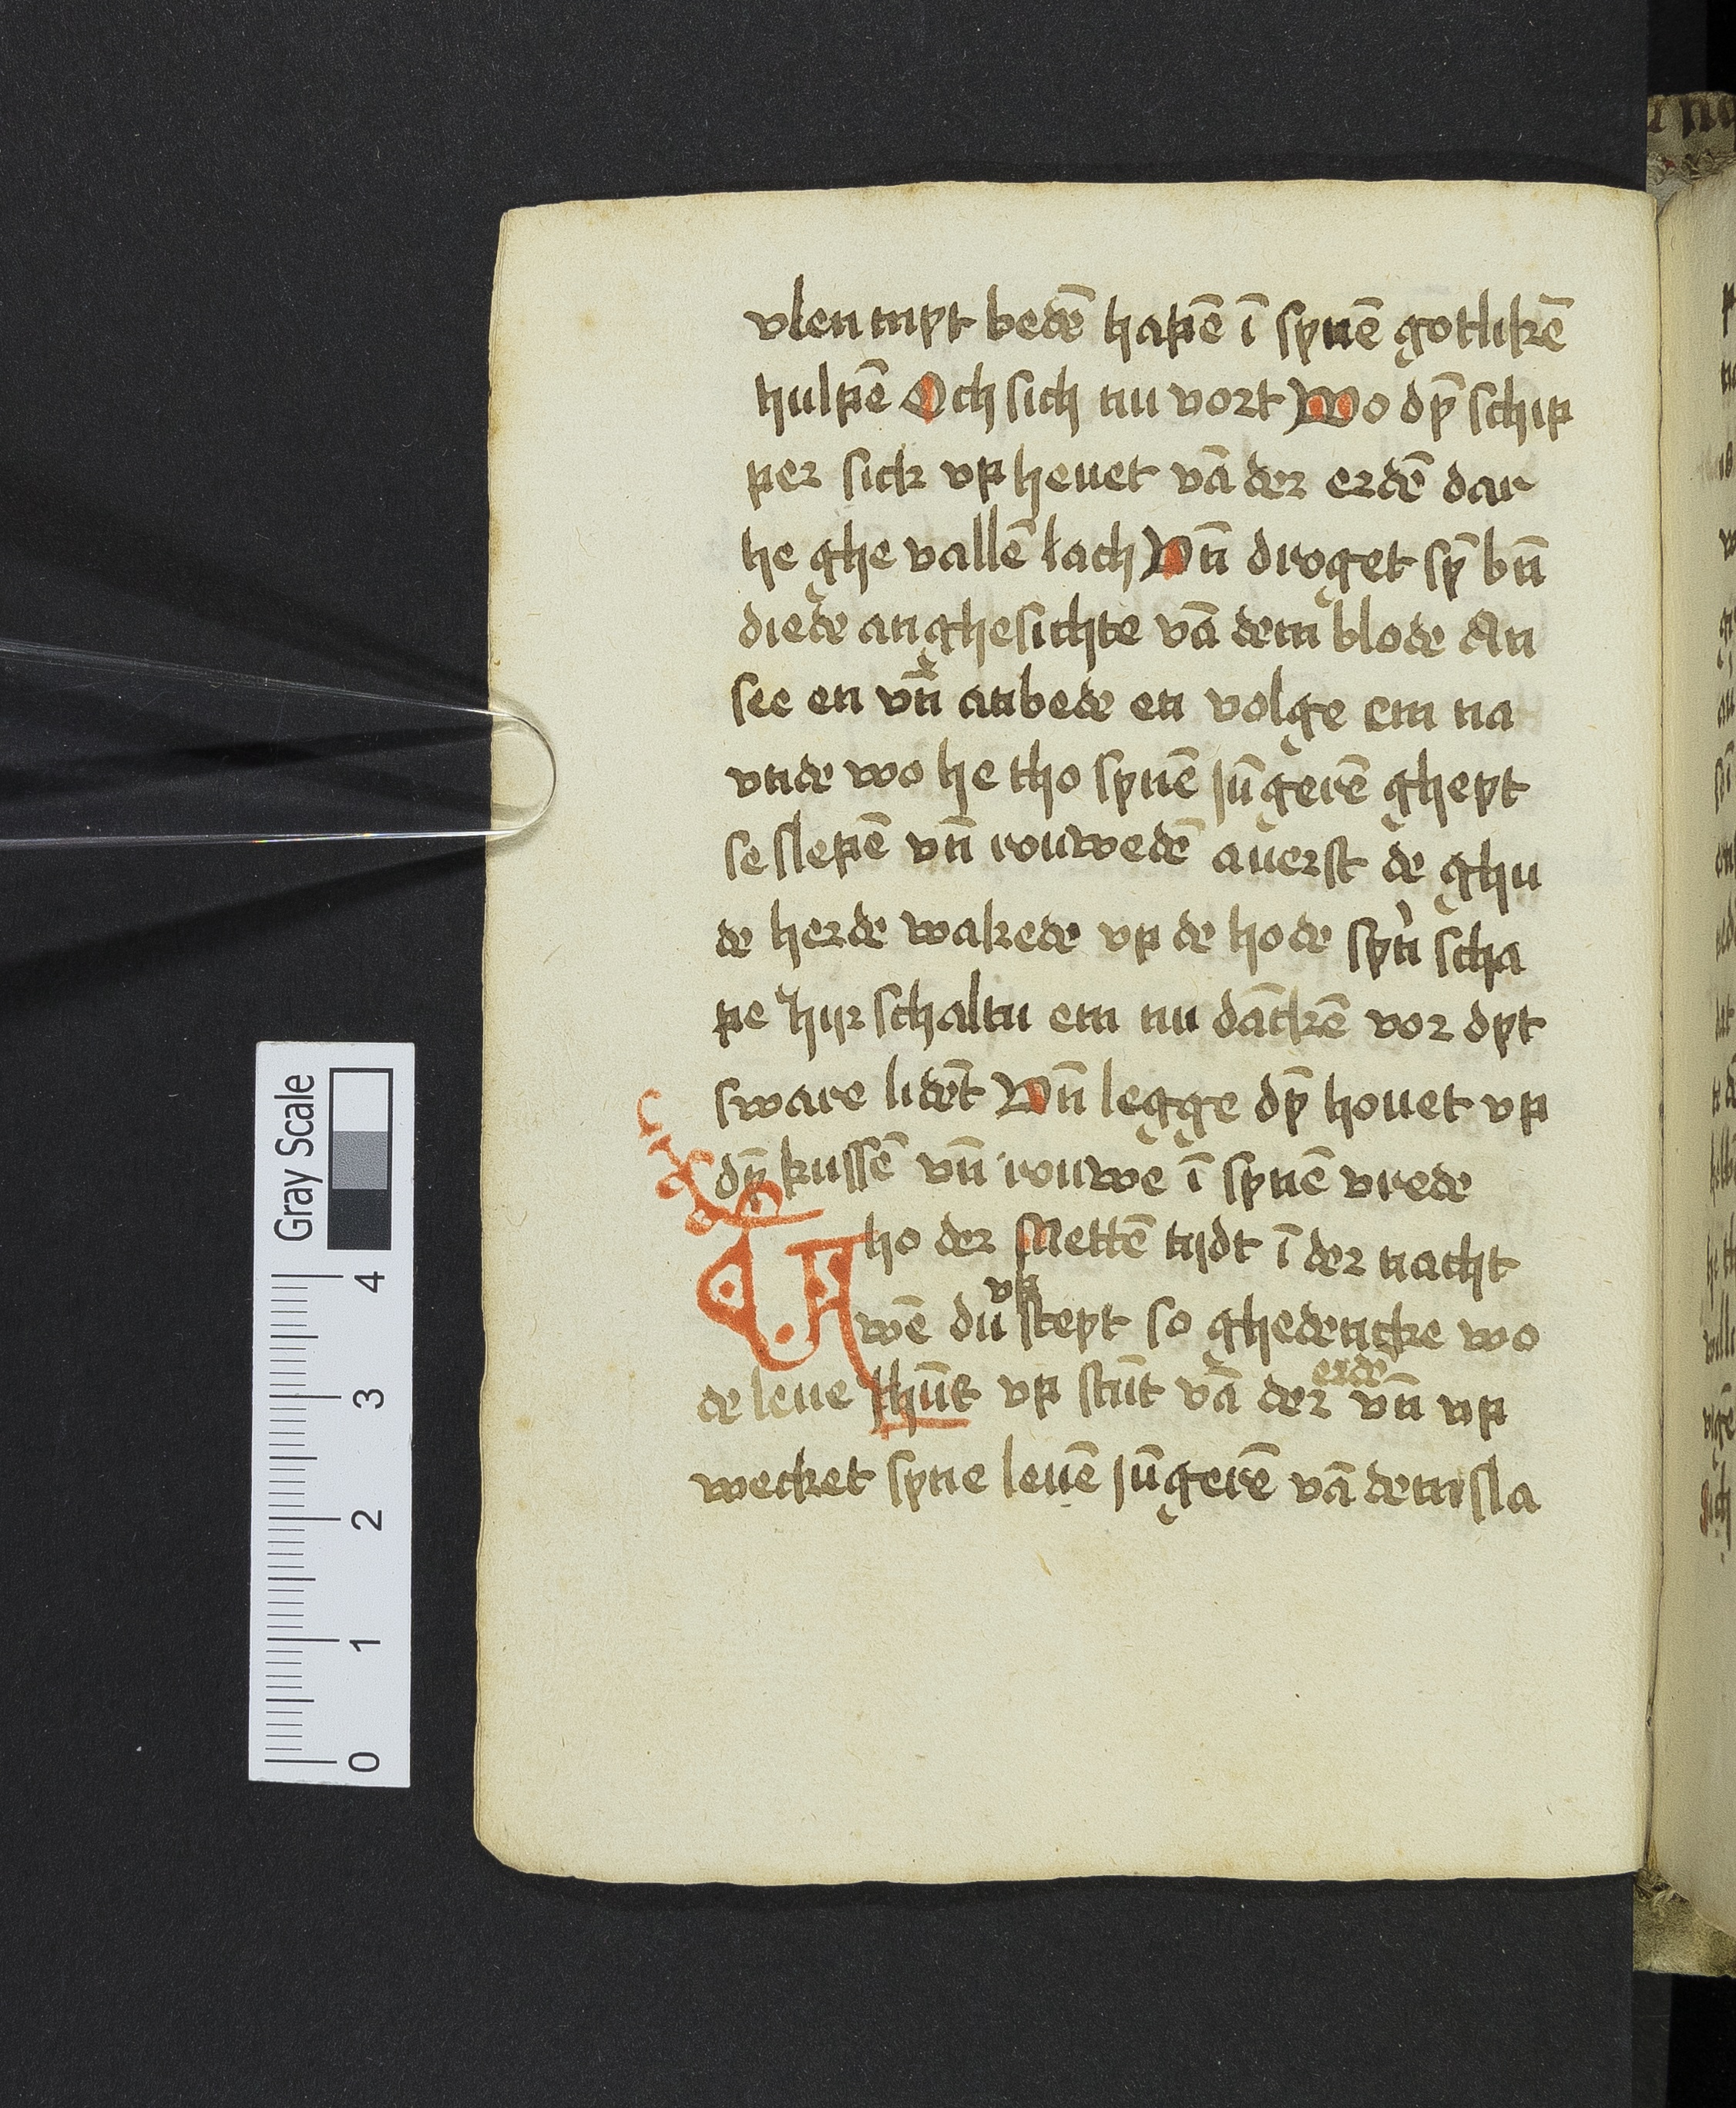 vlen myt bedē hapē ī synē gotlikē
hulpē Och sich nu vort Wo dȳ schip
per sick vp heuet vā der erdē dar
he ghe vallē lach Vn̄ droget sȳ bn̄
diede anghesichte vā dem blode An
see en vn̄ anbede en volge em na
vnde wo he tho synē jūgerē gheyt
se slepē vn̄ rouwedē auerst de ghu
de herde wakede vp de hode syn̉ scha
pe hyr schaltu em nu dāckē vor dyt
sware lidēt Vn̄ legge dȳ houet vp
dȳ kussē vn̄ rouwe ī synē vrede
Tho der Mettē tijdt ī der nacht
wē du vp steyt so ghedencke wo
de leue ihūs vp stūt vā der erdē vn̄ vp
wecket syne leuē jūgerē vā dem sla
Gray Scale
0 1 2 3 4